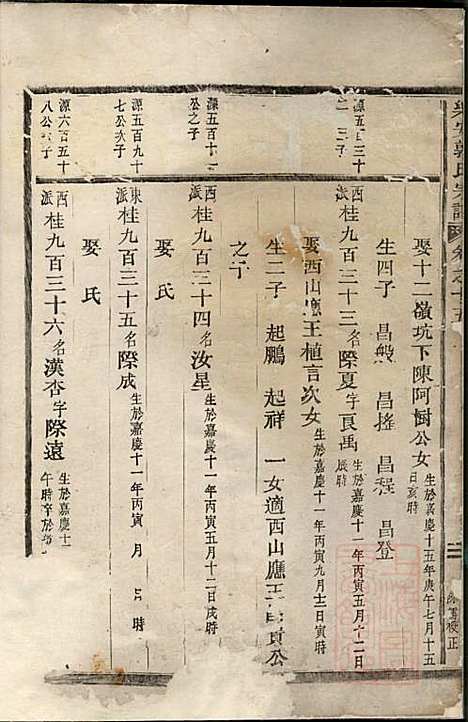 郭氏宗譜 卷之十五
娶十二嶺坑下陳阿廚公女 生於嘉慶十五年庚午七月十五日亥時
生四子 昌 昌搖 昌程 昌登
源五百三十二 三子
西派桂九百三十三 名際夏字良禹 生於嘉慶十一年丙寅五月十二日辰時
娶西山應王植言次女 生於嘉慶十一年丙寅九月十三日寅時
生二子 起鵬 起祥 一女適西山應王 公
之子
源五百十 公之子
西派桂九百三十四 名汝星 生於嘉慶十一年丙寅五月十二日戌時
娶 氏
源五百九十七公次子
東派桂九百三十五 名際成 生於嘉慶十一年丙寅 月 日 時
娶 氏
源六百五十八公 子
西派桂九百三十六 名漢杏字際遠 生於嘉慶十 午時卒於
校正